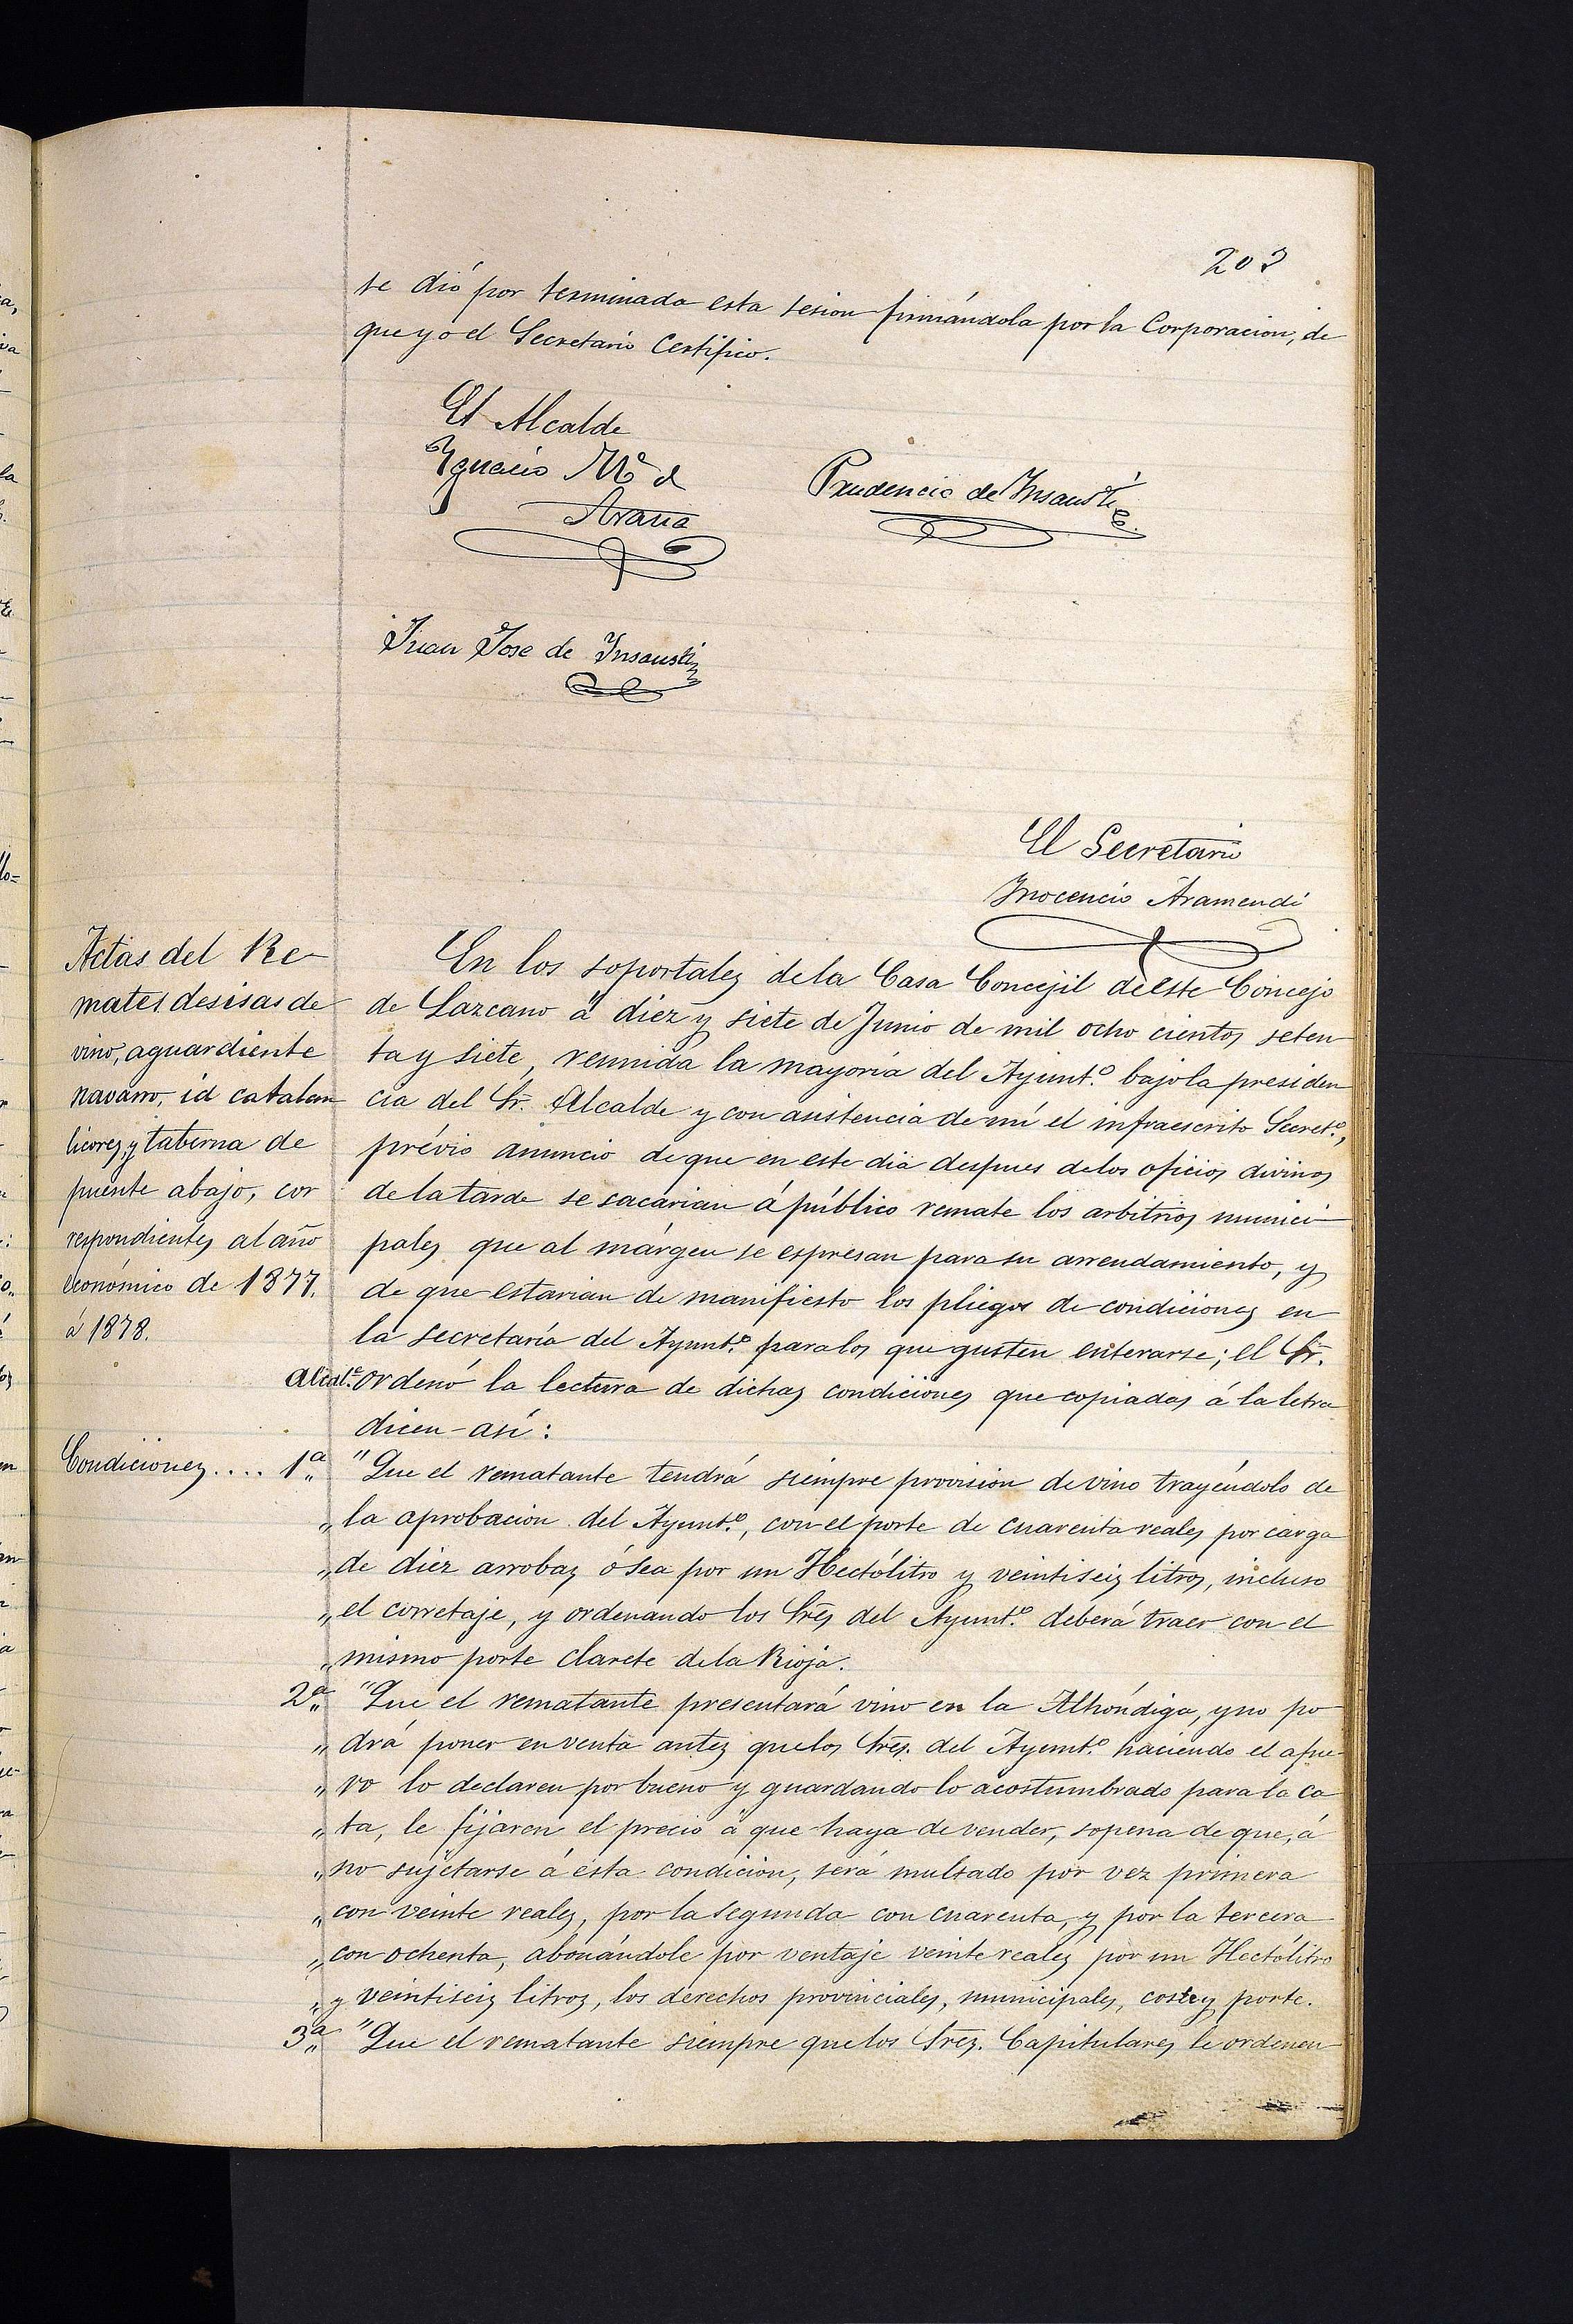 203
se dió por terminada esta sesion firmándola por la Corporacion, de
que yo el Secretario Certifico.
El Alcalde
Ygnacio Mª d
Arana
Prudencio de Insausti
Juan Jose de Insausti
El Secretario
Inocencio Aramendi
Actas del Re-
mates de sisas de
vino, aguardiente
navarro, id catalan
licores, y taberna de
puente abajo, cor
respondientes al año
económico de 1877.
á 1878.
En los soportales de la Casa Concejil de este Concejo
de Lazcano á diez y siete de Junio de mil ocho cientos seten
ta y siete, reunida la mayoría del Ayuntº. bajo la presiden
cia del Sr. Alcalde y con asistencia de mí el infraescrito Secretº.,
prévio anuncio de que en este dia despues de los oficios divinos
de la tarde se sacarian á público remate los arbitrios munici
pales que al márgen se espresan para su arrendamiento, y
de que estarian de manifiesto los pliegos de condiciones en
la secretaría del Ayuntº. para los que gusten enterarse; el Sr.
Alcalᵉ. ordenó la lectura de dichas condiciones que copiadas á la letra
dicen así:
Condiciones.... 1ª. "Que el rematante tendrá siempre provision de vino trayéndolo de
" la aprobacion del Ayuntº., con el porte de cuarenta reales por carga
" de diez arrobas ó sea por un Hectólitro y veintiseis litros, incluso
" el corretaje, y ordenando los Sres del Ayuntº. deberá traer con el
" mismo porte clarete de la Rioja.
2ª. "Que el rematante presentará vino en la Alhóndiga, y no po
" drá poner en venta antes que los Sres. del Ayuntº. haciendo el afue-
" ro lo declaren por bueno y guardando lo acostumbrado para la ca
" ta, le fijaren el precio á que haya de vender, sopena de que, á
" no sujetarse á esta condicion, será multado por vez primera
" con veinte reales, por la segunda con cuarenta, y por la tercera
" con ochenta, abonándole por ventaje veinte reales por un Hectólitro
" y veintiseis litros, los derechos provinciales, municipales, coste y porte.
3ª. "Que el rematante siempre que los Sres. Capitulares le ordenen